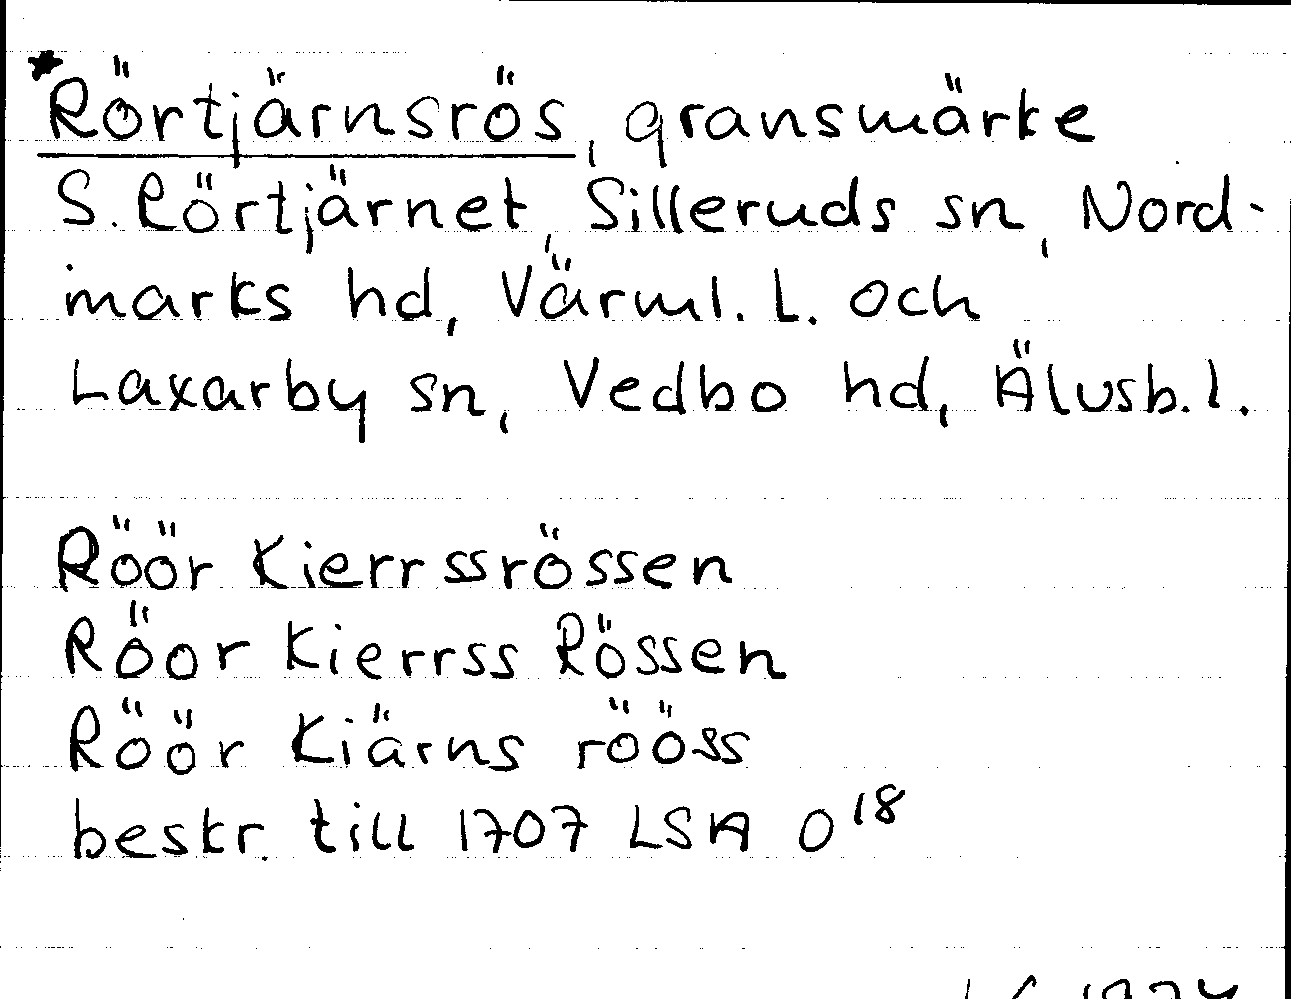 *Rörtjärnsrös, gränsmärke
S. Rörtjärnet, Silleruds sn, Nord-
marks hd, Värml. L. och
Laxarby sn, Vedbo hd, Älvsb. l.
Röör Kierrssrössen
Röor Kierrss Rössen
Röör Kiärns rööss
bestr. till 1707 LSA O18